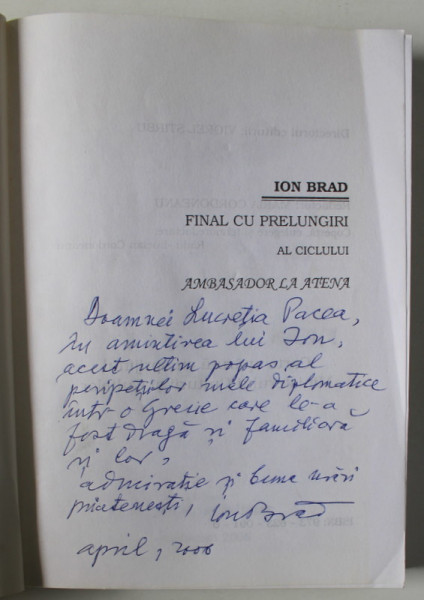 ION BRAD
FINAL CU PRELUNGIRI
AL CICLULUI
AMBASADOR LA ATENA
Doamnei Lucreția Pacea,
în amintirea lui Ion,
acest ultim popas al
peripețiilor mele diplomatice
într-o Grecie care le-a
fost dragă și familiară
și lor,
admirație și bune urări
prietenești, Ion Brad
april, 2006